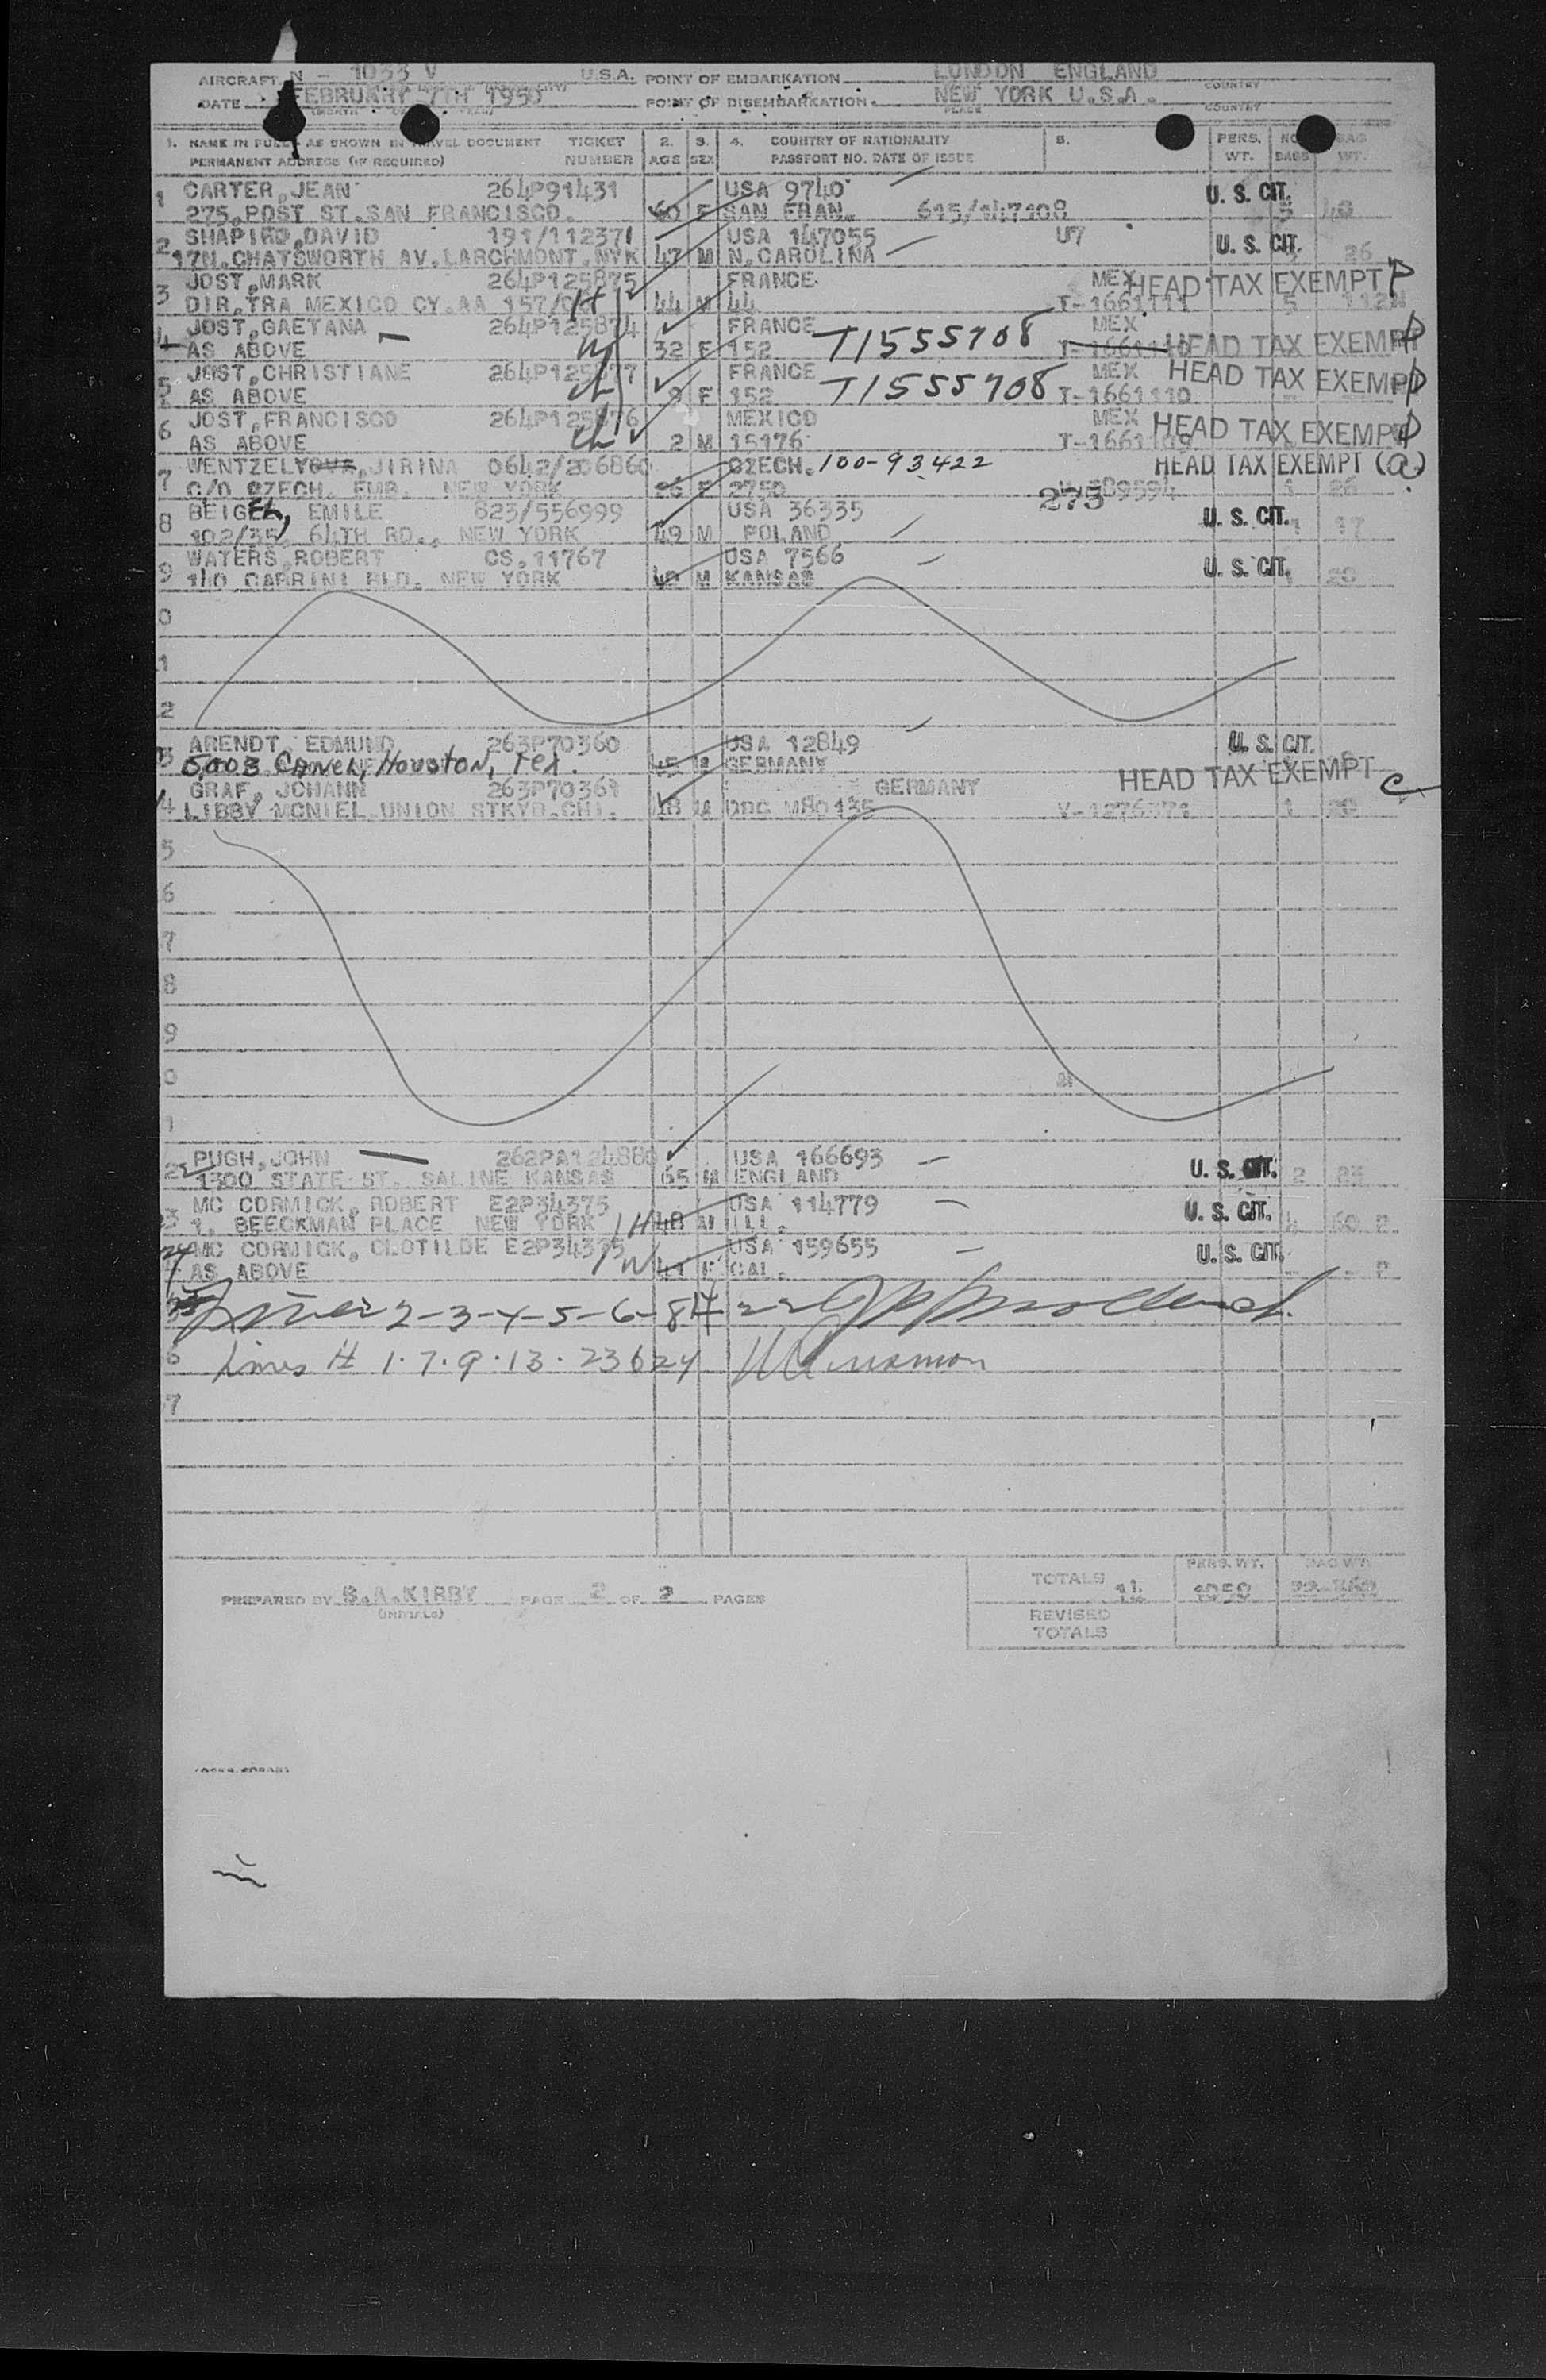 AIRCRAFT N - 1033 V U.S.A. POINT OF EMBARKATION LONDON ENGLAND COUNTRY
DATE FEBRUARY 7TH 1950 POINT OF DISEMBARKATION NEW YORK U.S.A. COUNTRY
PLACE
1. NAME IN FULL AS SHOWN IN TRAVEL DOCUMENT TICKET 2. 3. 4. COUNTRY OF NATIONALITY 5. PERS. NO. BAG
PERMANENT ADDRESS (IF REQUIRED) NUMBER AGE SEX PASSPORT NO. DATE OF ISSUE WT. BAGS WT.
1 CARTER, JEAN 264P91431 USA 9740 U. S. CIT.
275, POST ST. SAN FRANCISCO. 60 F SAN FRAN. 615/147108 48
2 SHAPIRO, DAVID 191/112371 USA 147055 U7 U. S. CIT.
17N. CHATSWORTH AV. LARCHMONT. NYK 47 M N. CAROLINA 26
3 JOST, MARK 264P125875 FRANCE MEX HEAD TAX EXEMPT P
DIR. TRA MEXICO CY. AA 157/ H 44 M 44 T-1661111 5 112
4 JOST, GAETANA 264P125874 FRANCE MEX
AS ABOVE W 32 F 152 T1555708 T-1661110 HEAD TAX EXEMPT P
5 JOST, CHRISTIANE 264P125877 FRANCE MEX HEAD TAX EXEMPT P
AS ABOVE ch 9 F 152 T1555708 T-1661110
6 JOST, FRANCISCO 264P125876 MEXICO MEX HEAD TAX EXEMPT P
AS ABOVE ch 2 M 15176 T-1661109
7 WENTZELYOVA, JIRINA 0642/206860 CZECH. 100-93422 HEAD TAX EXEMPT (a)
C/O CZECH. EMB. NEW YORK 26 F 2750 275 89594 26
8 BEIGEL, EMILE 823/556999 USA 36335 U. S. CIT.
102/35, 64TH RD., NEW YORK 49 M POLAND 17
9 WATERS, ROBERT CS. 11767 USA 7566 U. S. CIT.
140 CABRINI BLD. NEW YORK M KANSAS
0
1
2
3 ARENDT, EDMUND 263P70360 USA 12849 U. S. CIT.
5,003 CANEL, HOUSTON, TEX. 45 M GERMANY
4 GRAF, JOHANN 263P70361 GERMANY HEAD TAX EXEMPT C
LIBBY MCNIEL. UNION STKYD. CHI. 48 M DDC M80135 V-1276371 1
5
6
7
8
9
0
1
2 PUGH, JOHN 262PA124880 USA 166693 U. S. CIT. 2
1300 STATE ST. SALINE KANSAS 65 M ENGLAND
3 MC CORMICK, ROBERT E2P34375 USA 114779 U. S. CIT.
1. BEECKMAN PLACE NEW YORK 1H 48 M ILL. 4 60 P
24 MC CORMICK, CLOTILDE E2P34375 USA 159655 U. S. CIT.
AS ABOVE 1W 41 F CAL. P
Lines 2-3-4-5-6-8 + 22
6 Lines # 1.7.9.13.23 & 24
7
TOTALS 14 PERS. WT. 1958 BAG WT.
PREPARED BY S.A. KIRBY PAGE 2 OF 2 PAGES
(INITIALS)
REVISED
TOTALS